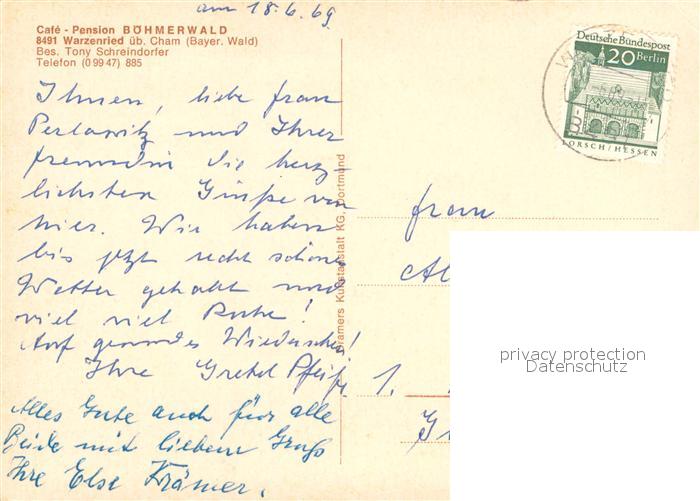 am 18.6.69
Café - Pension BÖHMERWALD
8491 Warzenried üb. Cham (Bayer. Wald)
Bes. Tony Schreindorfer
Telefon (0 99 47) 885
Ihnen, liebe Frau
Perlawitz und Ihrer
Freundin die herz-
lichsten Grüße von
hier. Wir haben
bis jetzt recht schönes
Wetter gehabt und
viel viel Ruhe!
Auf gesundes Wiedersehen!
Ihre Gretel Pfeif
Alles Gute auch für alle
Beide mit liebem Gruß
Ihre Else Krämer.
Cramers Kunstanstalt KG, Dortmund
Deutsche Bundespost
20 Berlin
LORSCH/HESSEN
Frau
1.
privacy protection
Datenschutz